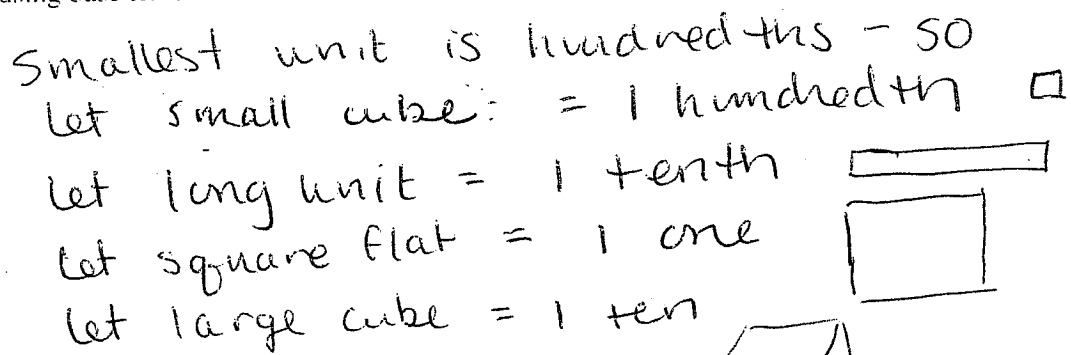 Smallest unit is hundredths - so
Let small cube: = 1 hundredth
Let long unit = 1 tenth
Let square flat = 1 one
Let large cube = 1 ten